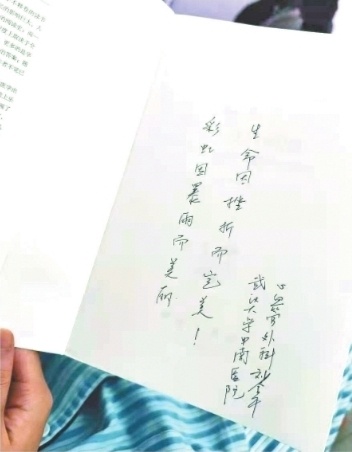 生命因挫折而岂美！
彩虹因暴雨而美丽
武汉大学中南医院
心血管外科 刘金平